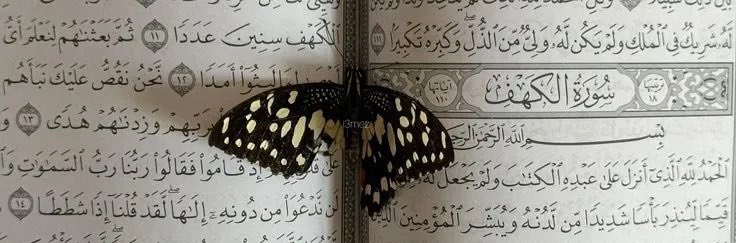 لَّهُۥ شَرِيكٌ فِى ٱلْمُلْكِ وَلَمْ يَكُن لَّهُۥ وَلِىٌّ مِّنَ ٱلذُّلِّ ۖ وَكَبِّرْهُ تَكْبِيرًۢا ١١١
ترتيبها ١٨ سُورَةُ الكَهْفِ آياتها ١١٠
بِسْمِ ٱللَّهِ ٱلرَّحْمَٰنِ ٱلرَّحِيمِ
ٱلْحَمْدُ لِلَّهِ ٱلَّذِىٓ أَنزَلَ عَلَىٰ عَبْدِهِ ٱلْكِتَٰبَ وَلَمْ يَجْعَل لَّهُۥ
قَيِّمًا لِّيُنذِرَ بَأْسًا شَدِيدًا مِّن لَّدُنْهُ وَيُبَشِّرَ ٱلْمُؤْمِنِينَ ٱلَّذِينَ
ٱلْكَهْفِ سِنِينَ عَدَدًا ١١ ثُمَّ بَعَثْنَٰهُمْ لِنَعْلَمَ أَىُّ
لَبِثُوٓا۟ أَمَدًا ١٢ نَّحْنُ نَقُصُّ عَلَيْكَ نَبَأَهُم
بِرَبِّهِمْ وَزِدْنَٰهُمْ هُدًى ١٣
إِذْ قَامُوا۟ فَقَالُوا۟ رَبُّنَا رَبُّ ٱلسَّمَٰوَٰتِ
لَن نَّدْعُوَا۟ مِن دُونِهِۦٓ إِلَٰهًا ۖ لَّقَدْ قُلْنَآ إِذًا شَطَطًا ١٤